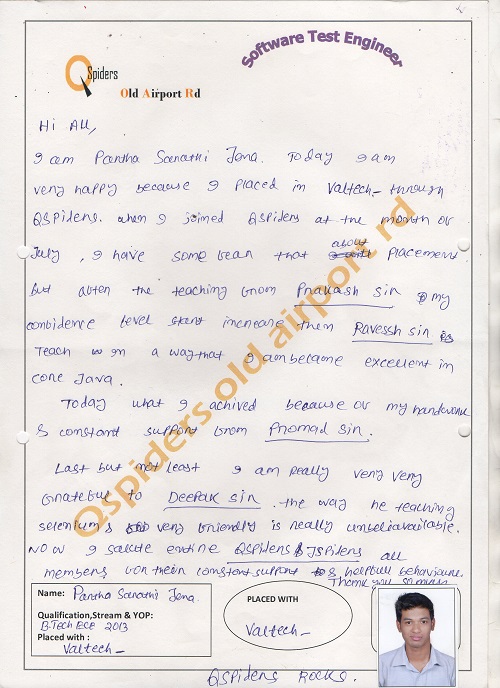 Software Test Engineer
QSpiders
Old Airport Rd
Hi All,
I am Partha Sarathi Jena. Today I am
very happy because I placed in Valtech - through
QSpiders. when I joined QSpiders at the month of
July, I have some fear that about placement
But after the teaching from Prakash sir my
confidence level start increase then Ravessh sir
Teach us in a way that I am became excellent in
core Java.
Today what I achived because of my hardwork
& constant support from Promad sir.
Last but not least I am really very very
Grateful to Deepak sir. the way he teaching
selenium & very friendly is really unbeliavailable.
Now I salute entire QSpiders & JSpiders all
members for their constant support & helpfull behaviour.
Thank you so much
Qspiders old airport rd
Name: Partha Sarathi Jena.
Qualification,Stream & YOP:
B.Tech ECE 2013
Placed with :
Valtech -
PLACED WITH
Valtech -
QSpiders Rocks.